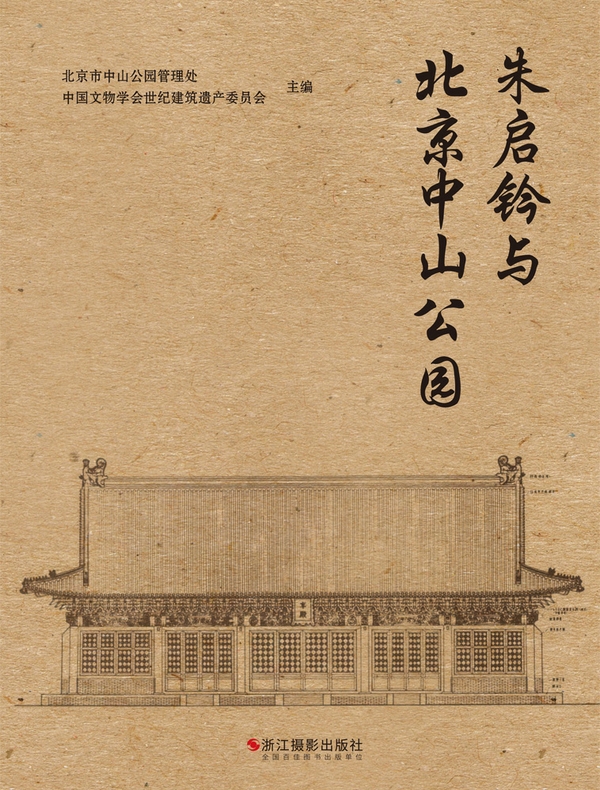 朱启钤与
北京中山公园
北京市中山公园管理处
中国文物学会世纪建筑遗产委员会
主编
享殿
浙江摄影出版社
全国百佳图书出版单位